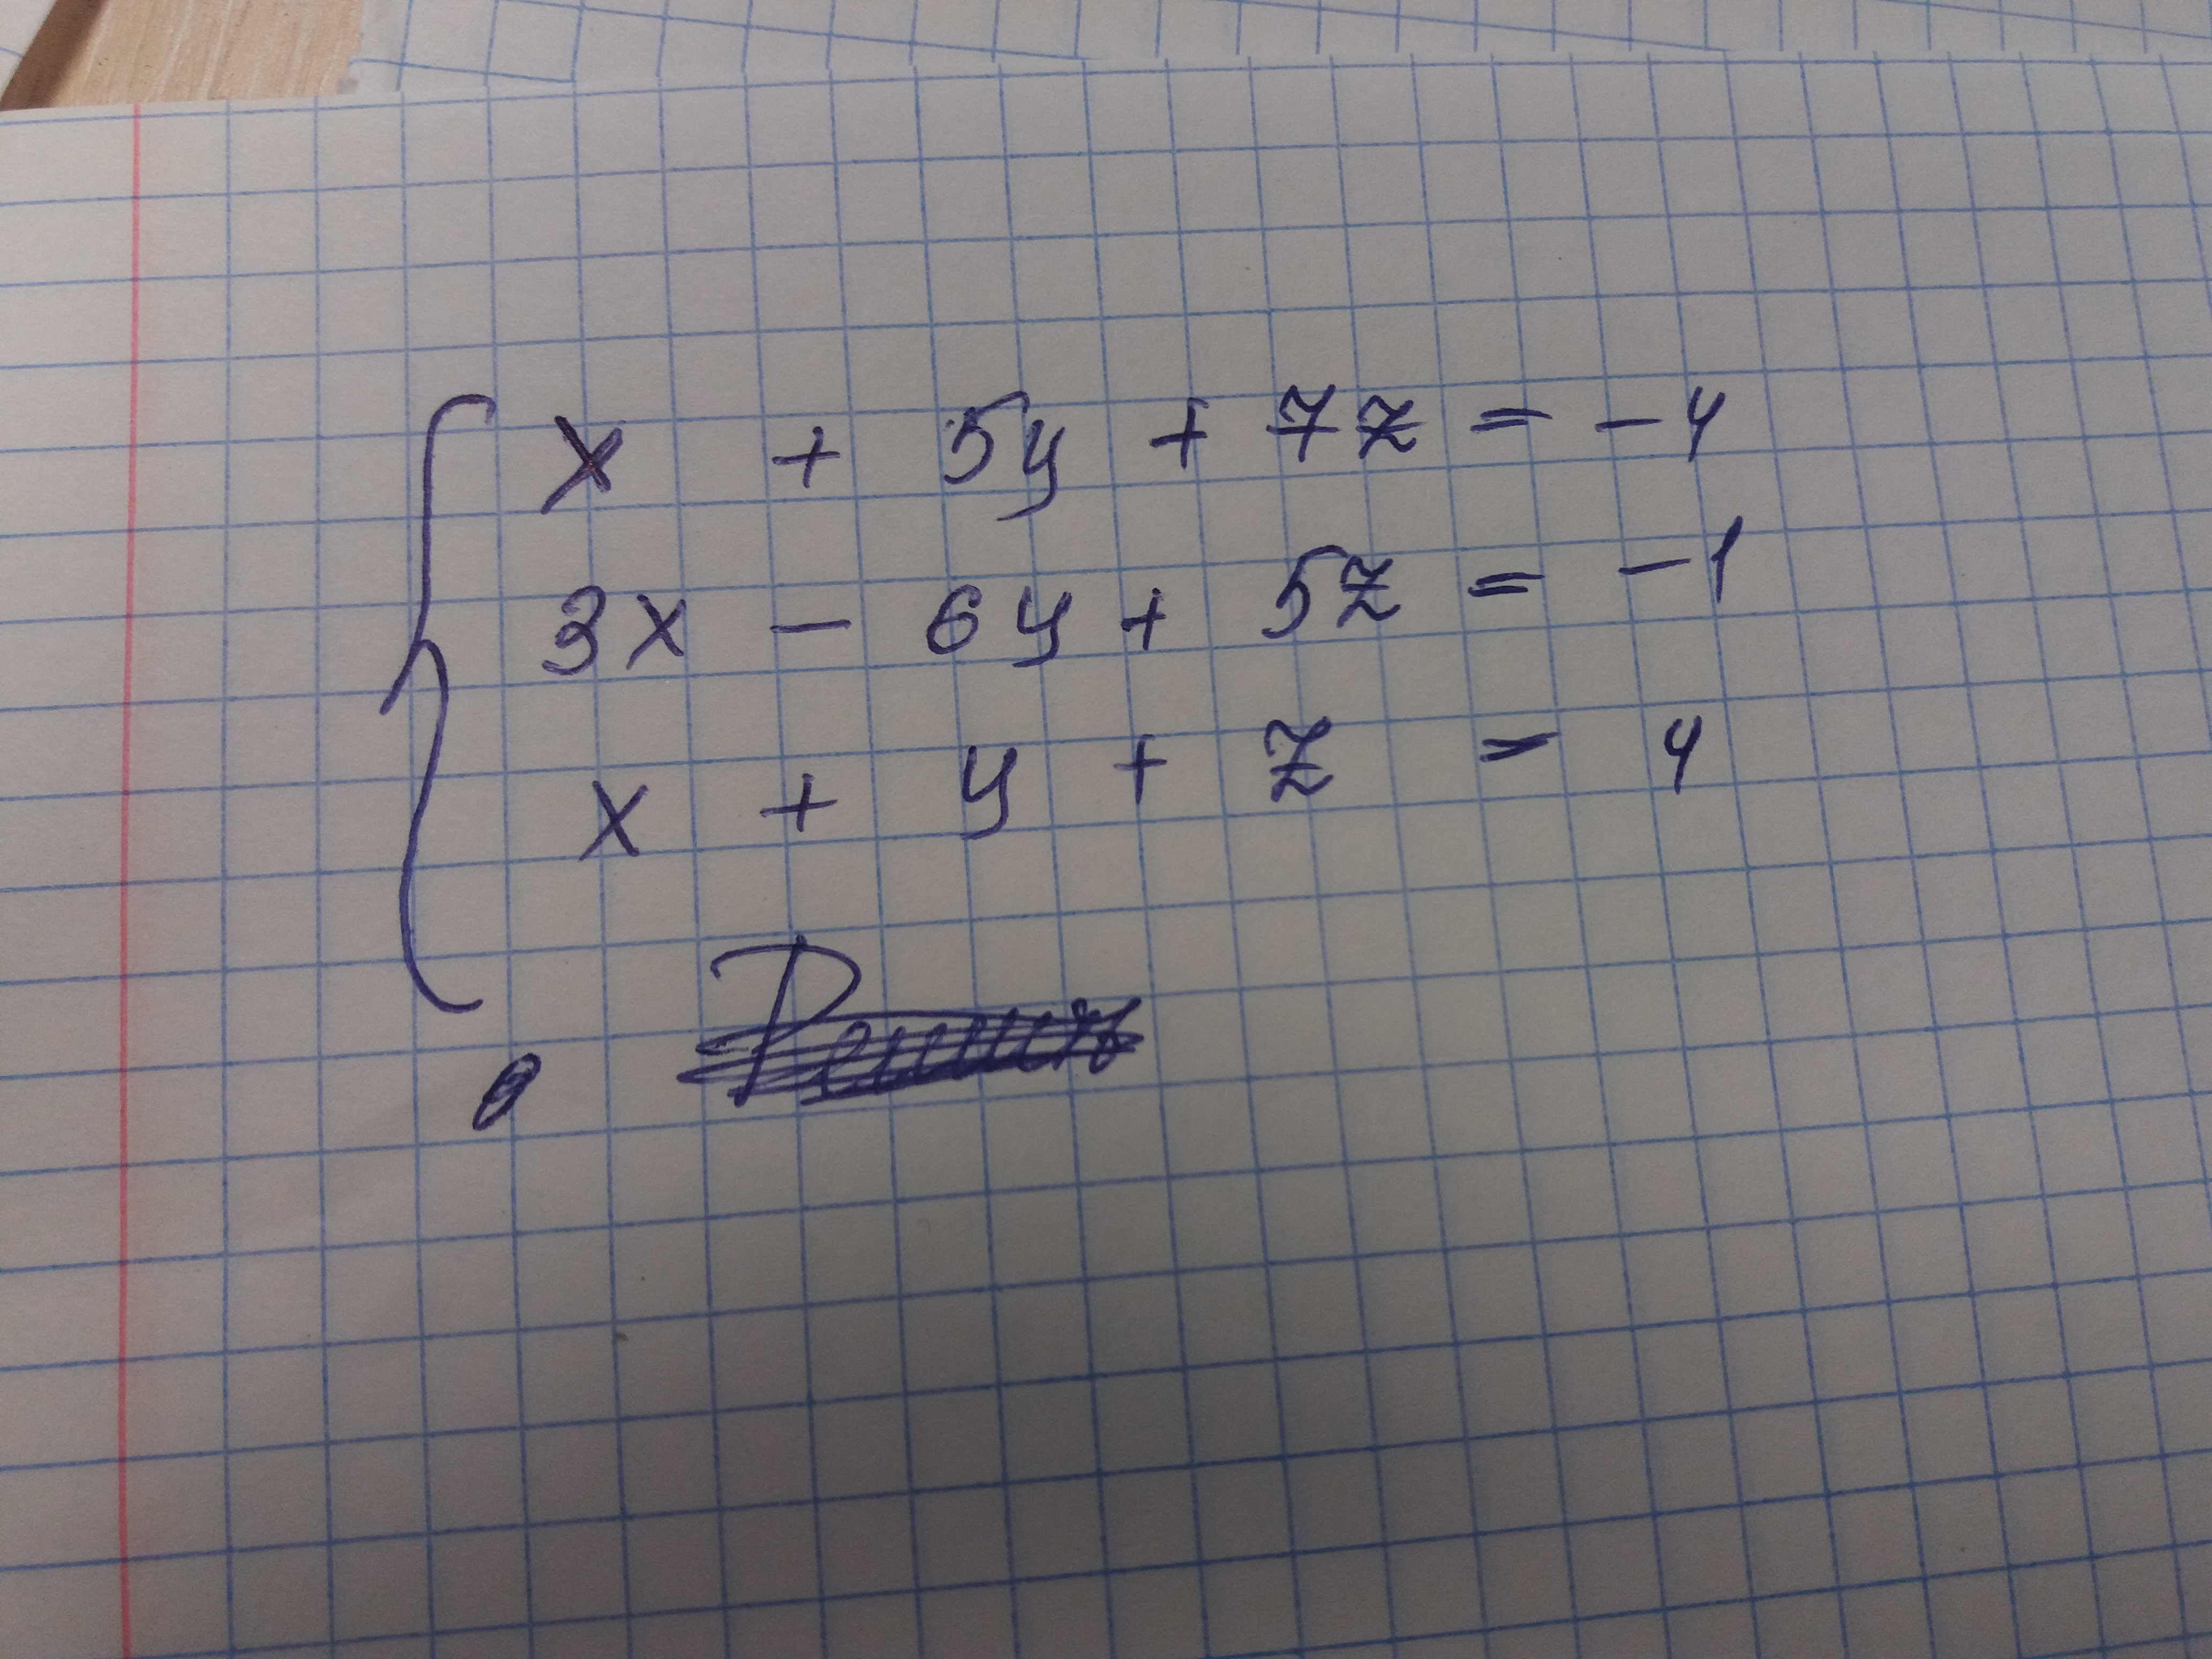 x + 5y + 7z = -4
3x - 6y + 5z = -1
x + y + z = 4